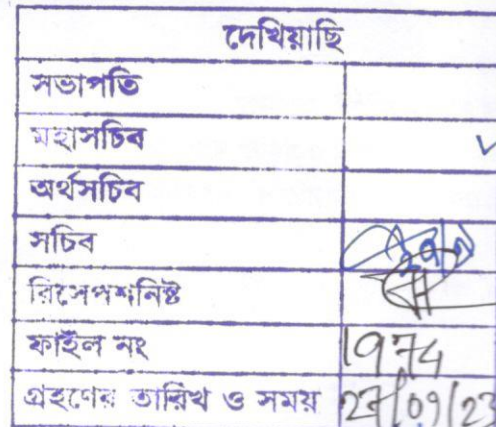 দেখিয়াছি
সভাপতি
মহাসচিব
অর্থসচিব
সচিব
রিসেপশনিষ্ট
ফাইল নং 1974
গ্রহণের তারিখ ও সময় 27/09/23